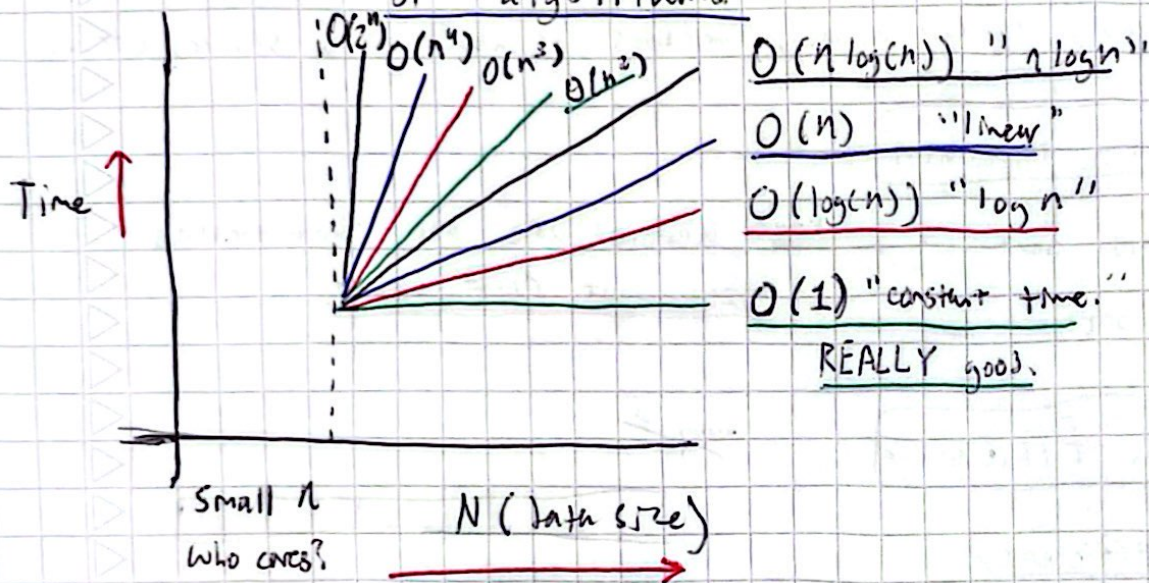 O(2ⁿ) O(n⁴) O(n³) O(n²)
O(n log(n)) "n log n"
O(n) "linear"
O(log(n)) "log n"
O(1) "constant time."
REALLY good.
Time
Small n
who cares?
N (data size)